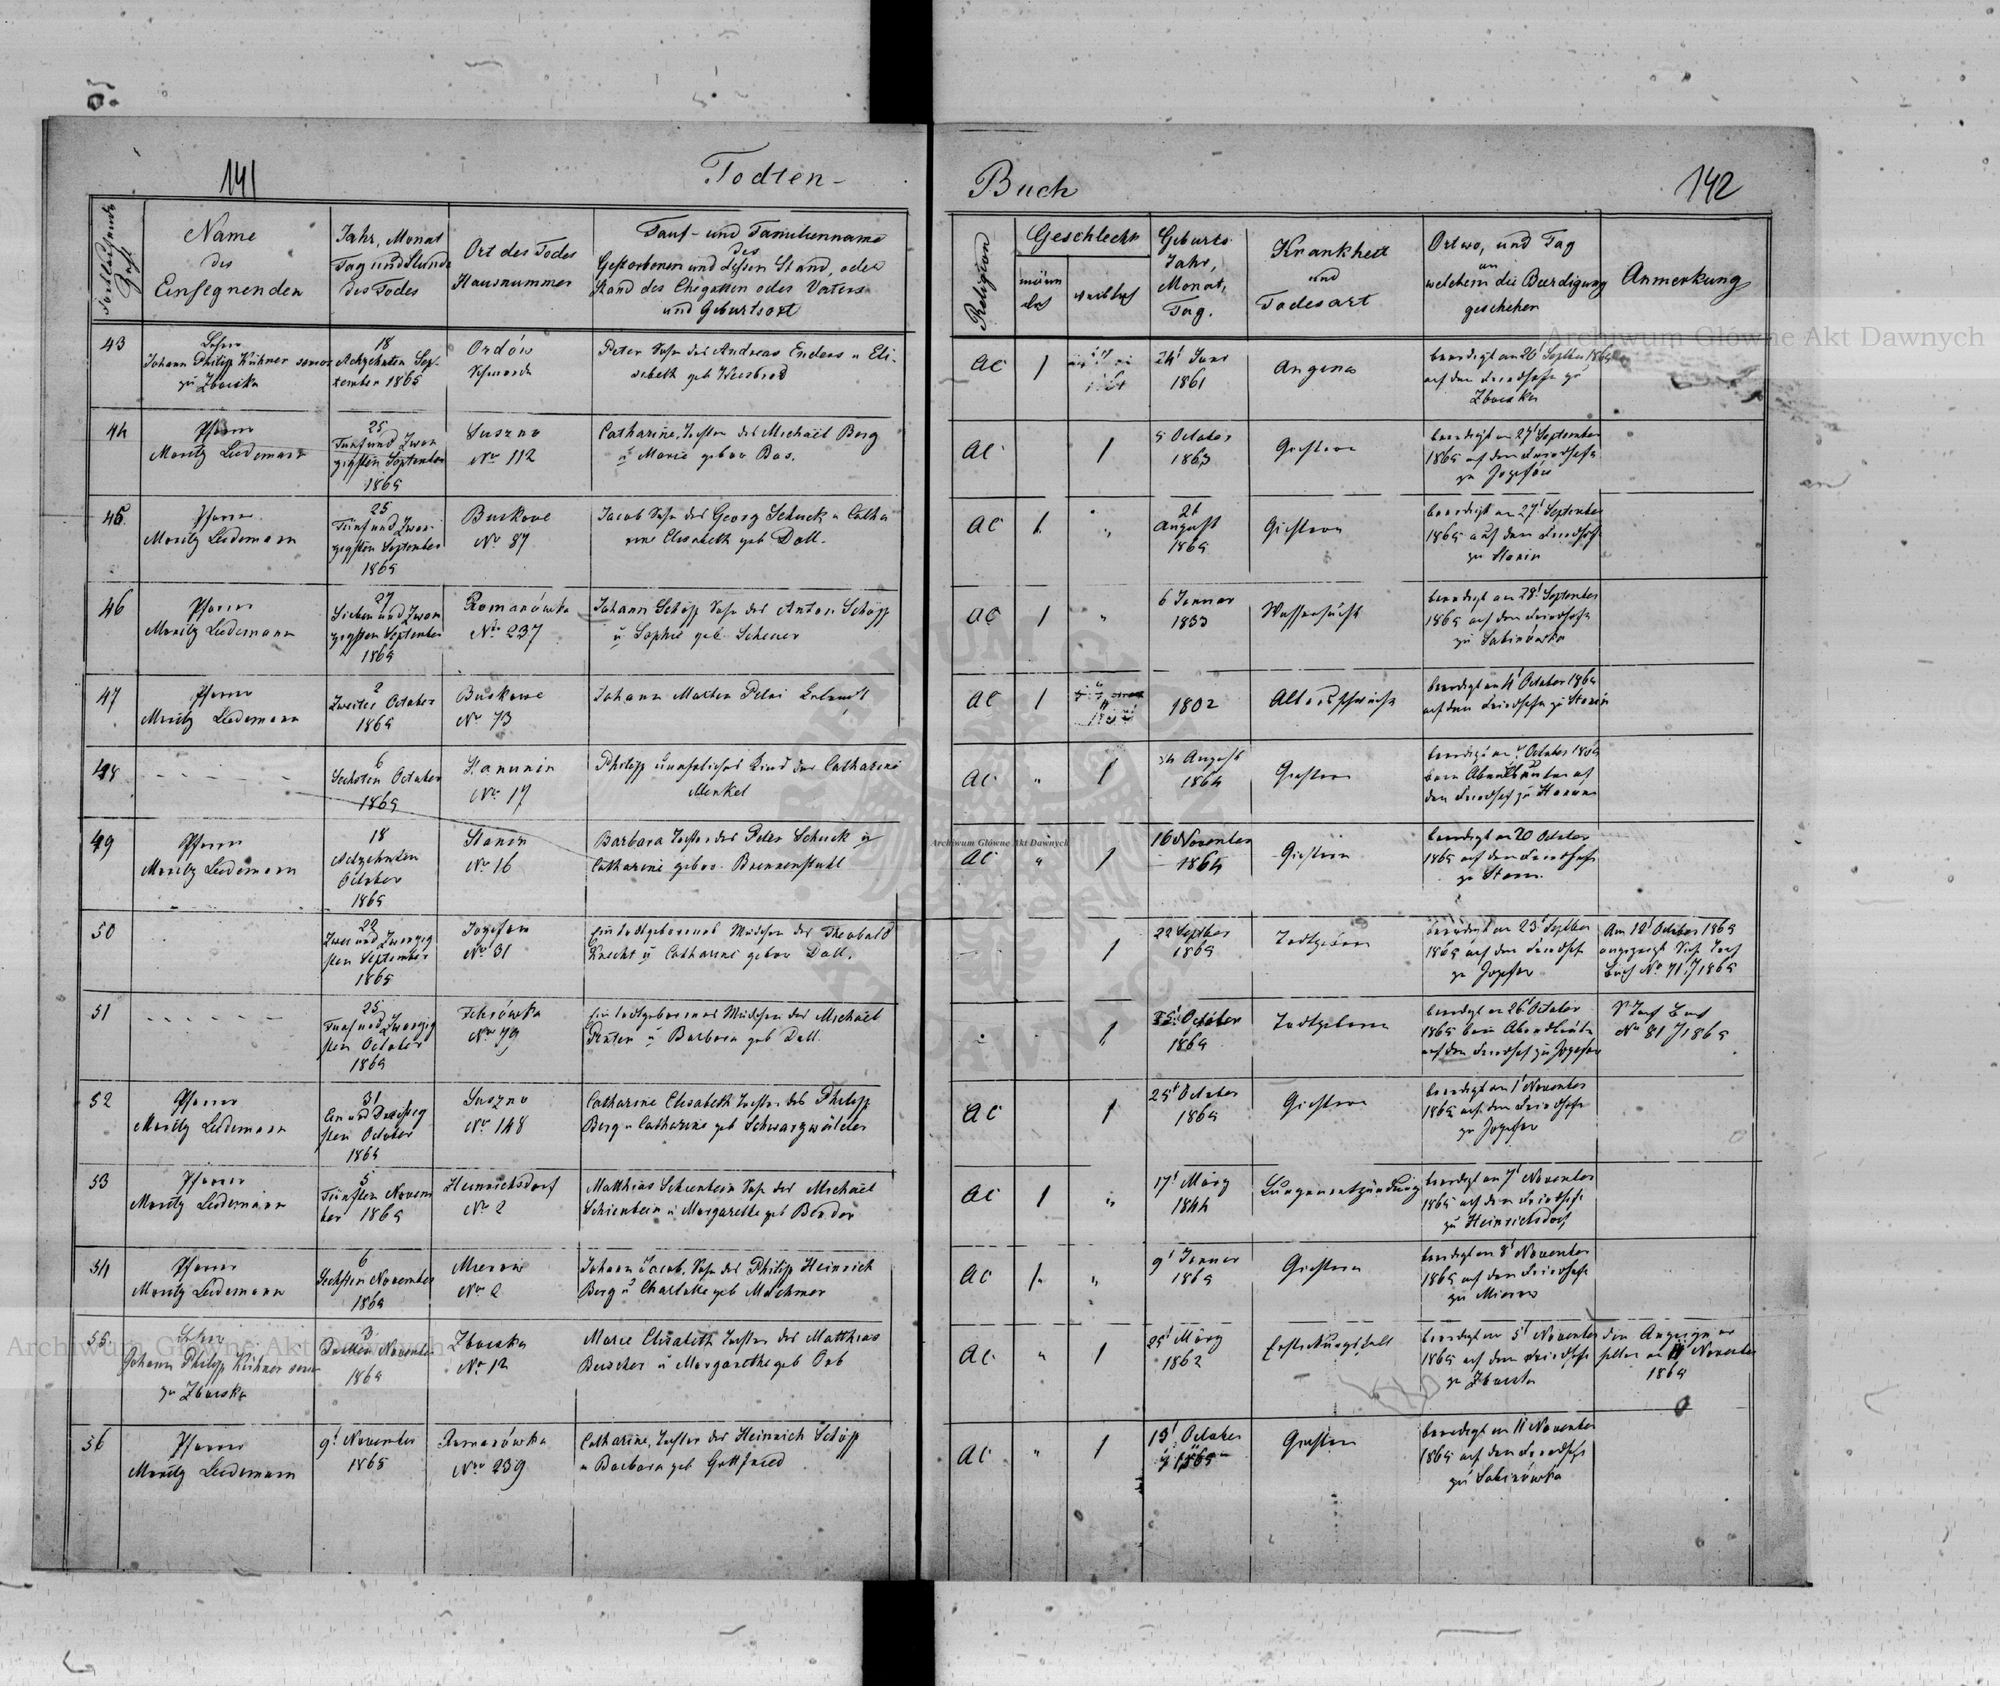 141
Todten-
Buch
142
Name
des
Einsegnenden
Jahr, Monat
Tag und Stunde
des Todes
Ort des Todes
Hausnummer
Tauf- und Familienname
des
Gestorbenen und dessen Stand, oder
Stand des Ehegatten oder Vaters
und Geburtsort
Religion
Geschlecht
männ
lich
weiblich
Geburts
Jahr,
Monat,
Tag.
Krankheit
und
Todesart
Ort wo, und Tag
an
welchem die Beerdigung
geschehen
Anmerkung
43
Lehrer
Johann Philipp Kühner senior
zu Zboiska
18
Achzehnten Sep-
tember 1865
Ordów
Peter Sohn des Andreas Enders u Eli-
sebeth geb
AC
1
24t Juni
1861
Angina
beerdigt am 20t Septber 1865
auf dem Friedhofe zu
Zboiska
44
Pfarrer
Moritz Liedemann
25
Fünf und Zwan
zigsten September
1865
Suszno
No 112
Catharine, Tochter des Michael Berg
u Marie gebor Bas.
AC
1
5 October
1863
beerdigt am 27t September
1865 auf dem Friedhofe
zu Jozefów
45
Pfarrer
Moritz Liedemann
25
Fünf und Zwan
zigsten September
1865
No 87
Jacob Sohn des Georg Schuck u Catha
rine Elisabeth geb Doll.
AC
1
August
1865
beerdigt am 27t September
1865 auf dem Friedhofe
zu Stanin
46
Pfarrer
Moritz Liedemann
27
Sieben und Zwan
zigsten September
1865
Romanówka
No 237
Johann Schöpp Sohn des Anton Schöpp
u Sophie geb. Scheuer
AC
1
6 Jenner
1833
Wassersucht
beerdigt am 28t September
1865 auf dem Friedhofe
zu Sabinówka
47
Pfarrer
Moritz Liedemann
2
Zweiter October
1865
No 73
Johann Martin Petri
AC
1
1802
Altersschwäche
beerdigt am 4t October 1865
auf dem Friedhofe zu Stanin
48
6
Sechsten October
1865
Stanin
No 17
Philipp uneheliches Kind der Catharine
Menkel
AC
1
August
1864
October 1865
beim Abendläuten auf
dem Friedhof zu Stanin
49
Pfarrer
Moritz Liedemann
18
Achzehnten
October
1865
Stanin
No 16
Barbara Tochter des Peter Schuck u
Catharine gebor. Brennenstuhl
AC
1
16 November
1864
beerdigt am 20 October
1865 auf dem Friedhofe
zu Stanin
50
22
Zwei und Zwanzig
sten September
1865
Jozefow
No 31
Ein todtgeborenes Mädchen des Theobald
Knecht u Catharine gebor Doll.
1
22 Septber
1865
Todtgeboren
beerdigt am 23t Septber
1865 auf dem Friedhofe
zu Jozefow
Am 12t October 1865
angezeigt Sieh Tauf
Buch No 71 J 1865
51
25
Fünf und Zwanzig
sten October
1865
No 79
Ein todtgeborenes Mädchen des Michael
u Barbara geb Doll.
1
25t October
1865
Todtgeboren
beerdigt am 26t October
1865 beim Abendläuten
auf dem Friedhof zu Jozefow
S Tauf Buch
No 81 J 1865
52
Pfarrer
Moritz Liedemann
31
Ein und Dreissig
sten October
1865
Suszno
No 148
Catharine Elisabeth Tochter des Philipp
Berg u Catharine geb Schwarzwälder
AC
1
25t October
1865
beerdigt am 1t November
1865 auf dem Friedhofe
zu Jozefow
53
Pfarrer
Moritz Liedemann
5
Fünften Novem
ber 1865
Heinrichsdorf
No 2
Matthias Schienbein Sohn des Michael
Schienbein u Margarethe geb Bender
AC
1
17t März
1844
Lungenentzündung
beerdigt am 7t November
1865 auf dem Friedhofe
zu Heinrichsdorf
54
Pfarrer
Moritz Liedemann
6
Sechsten November
1865
Mierow
No 2
Johann Jacob, Sohn des Philipp Heinrich
Berg u Charlotte geb Machmer
AC
1
9t Jenner
1865
beerdigt am 8t November
1865 auf dem Friedhofe
zu Mierow
55
Lehrer
Johann Philipp Kühner senior
zu Zboiska
3
Dritten November
1865
Zboiska
No 12
Marie Elisabeth Tochter des Matthias
u Margarethe geb Orb
AC
1
25t März
1862
Erstickungsfall
beerdigt am 5t November
1865 auf dem Friedhofe
zu Zboiska
die Anzeige er
halten am November
1865
56
Pfarrer
Moritz Liedemann
9t November
1865
Romanówka
No 239
Catharine, Tochter des Heinrich Schöpp
u Barbara geb Gottfried
AC
1
13t October
1865
beerdigt am 11 November
1865 auf dem Friedhofe
zu Sabinówka
Archiwum Główne Akt Dawnych
Archiwum Główne Akt Dawnych
Archiwum Główne Akt Dawnych